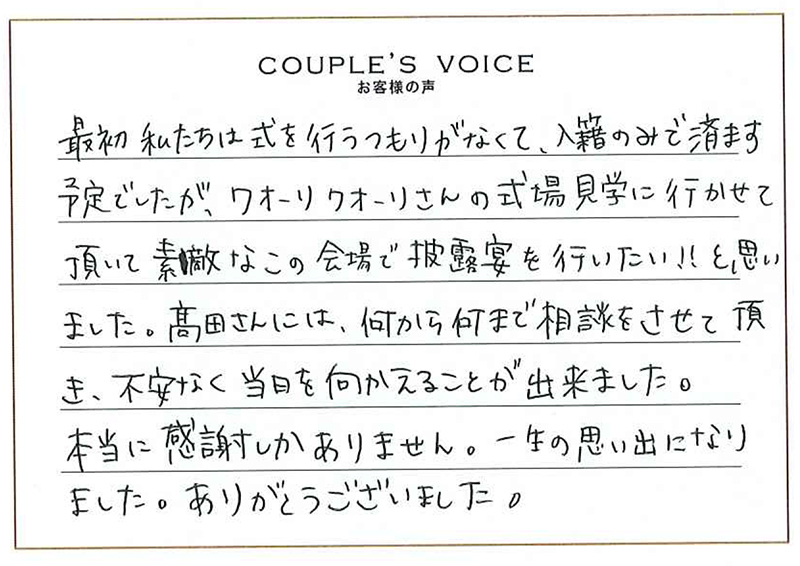 COUPLE'S VOICE
お客様の声
最初 私たちは式を行うつもりがなくて、入籍のみで済ます
予定でしたが、クオーリクオーリさんの式場見学に行かせて
頂いて素敵なこの会場で披露宴を行いたい!!と思い
ました。髙田さんには、何から何まで相談をさせて頂
き、不安なく当日を向かえることが出来ました。
本当に感謝しかありません。一生の思い出になり
ました。ありがとうございました。